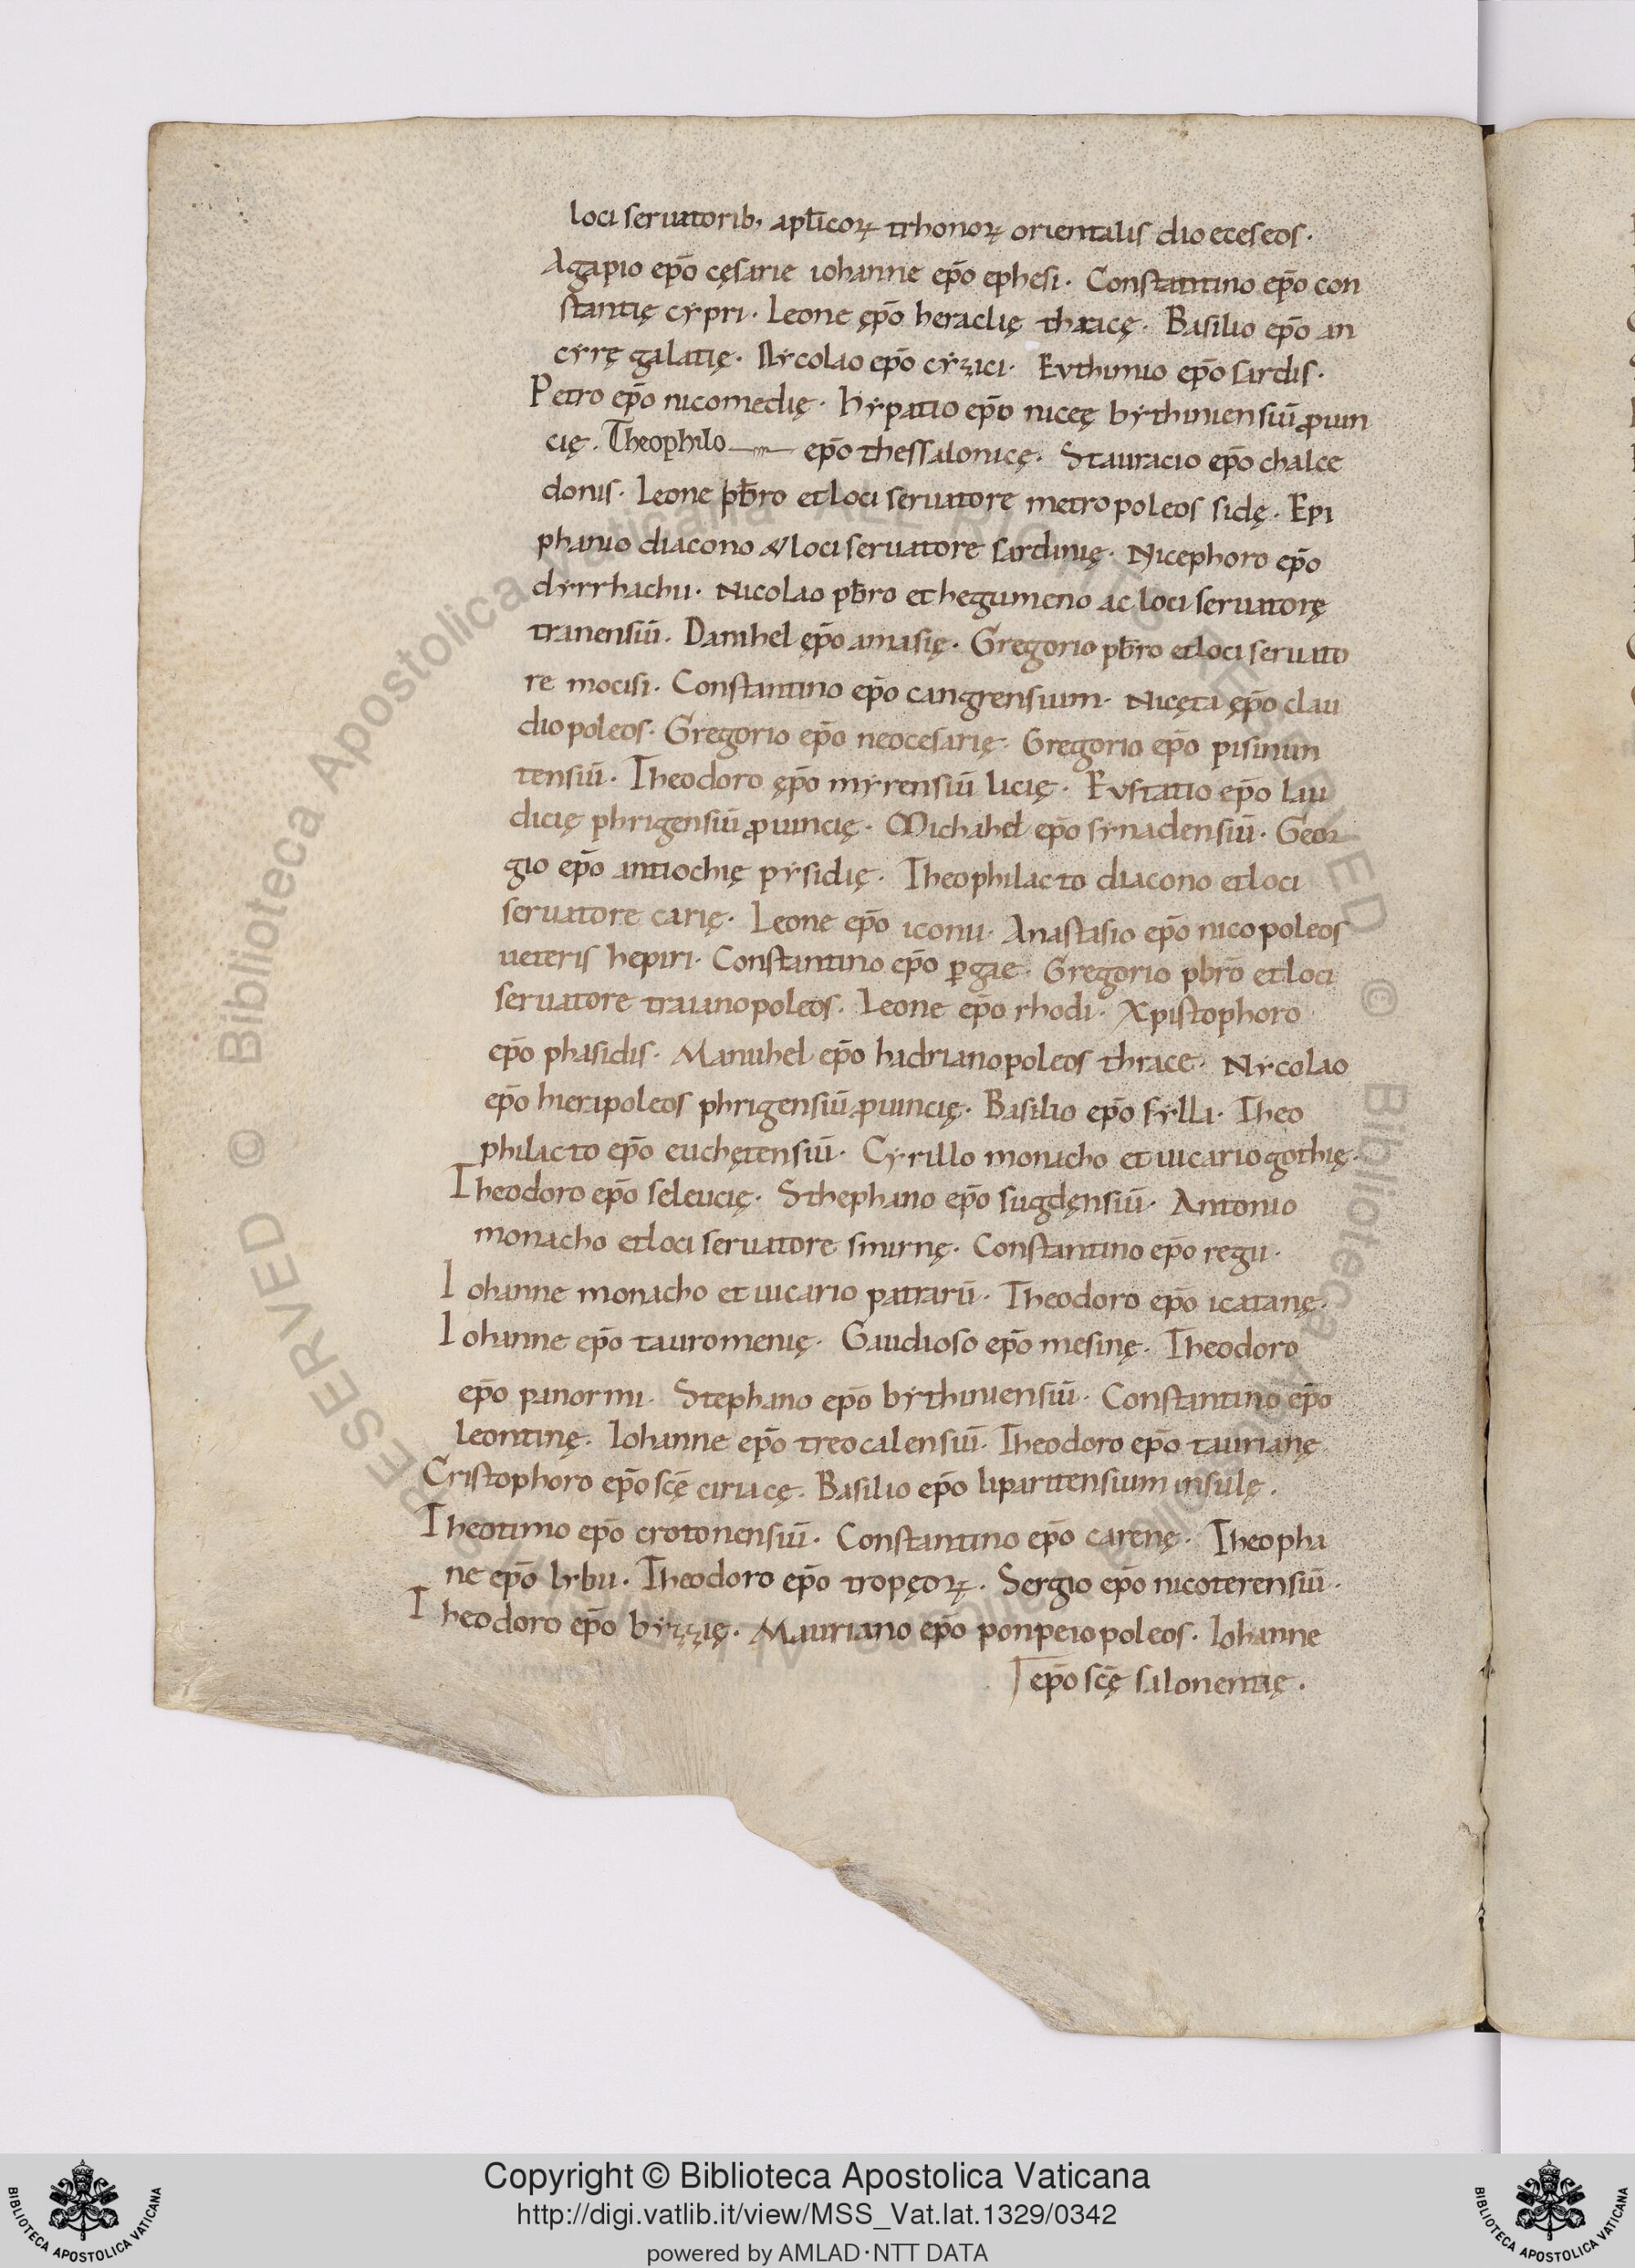 loci seruatorib; apl̄icoꝝ trhonoꝝ orientalis dioeceseos.
Agapio ep̄o cęsarie iohanne ep̄o ephesi. Constantino ep̄o con
stantię cypri. Leone ęp̄o heraclię thracę. Basilio ep̄o an
cyrę galatię. Nycolao ep̄o cyzici. Euthimio ep̄o sardis.
Petro ep̄o nicomedię. hypatio ep̄o niceę bythiniensiū ꝓuin
cię. Theophilo ep̄o thessalonicę. Stauracio ep̄o chalce
donis. Leone pb̄ro et loci seruatore metropoleos sidę. Epi
phanio diacono & loci seruatore sardinię. Nicephoro ep̄o
dyrrhachii. Nicolao pb̄ro et hegumeno ac loci seruatorę
tianensiū. Danihel ęp̄o amasię. Gregorio pb̄ro et loci seruato
re mocisi. Constantino ep̄o cangrensium. Nicęta ęp̄o clau
diopoleos. Gregorio ep̄o neocesarię. Gregorio ep̄o pisinun
tensiū. Theodoro ęp̄o myrensiū licię. Eustatio ep̄o lau
dicię phrigensiū ꝓuincię. Michahel ep̄o synadensiū. Geor
gio ep̄o antiochię pysidię. Theophilacto diacono et loci
seruatore carię. Leone ep̄o iconii. Anastasio ep̄o nicopoleos
ueteris hepiri. Constantino ep̄o ꝑgae. Gregorio pb̄ro et loci
seruatore traianopoleos. Leone ep̄o rhodi. Xpistophoro
ep̄o phasidis. Manuhel ep̄o hadrianopoleos thrace. Nycolao
ep̄o hierapoleos phrigensiū ꝓuincię. Basilio ep̄o sylli. Theo
philacto ep̄o euchętensiū. Cyrillo monacho et uicario gothię.
Theodoro ep̄o seleucię. Sthephano ep̄o sugdęnsiū. Antonio
monacho et loci seruatore smirnę. Constantino ep̄o regii.
Iohanne monacho et uicario patrarū. Theodoro ep̄o icatanę.
Iohanne ep̄o tauromenię. Gaudioso ep̄o mesinę. Theodoro
ep̄o panormi. Stephano ep̄o bythiniensiū. Constantino ep̄o
leontinę. Iohanne ep̄o treocalensiū. Theodoro ep̄o taurianę
Cristophoro ep̄o sc̄ę ciriacę. Basilio ep̄o liparitensium insulę.
Theotimo ep̄o crotonensiū. Constantino ep̄o carenę. Theopha
ne ep̄o lybii. Theodoro ep̄o tropęoꝝ. Sergio ep̄o nicoterensiū.
Theodoro ep̄o byzzię. Mauriano ep̄o ponpeiopoleos. Iohanne
ep̄o sc̄ę salonentię.
© Biblioteca Apostolica Vaticana ALL RIGHTS RESERVED © Biblioteca Apostolica Vaticana ALL RIGHTS RESERVED
Copyright © Biblioteca Apostolica Vaticana
http://digi.vatlib.it/view/MSS_Vat.lat.1329/0342
powered by AMLAD·NTT DATA
BIBLIOTECA APOSTOLICA VATICANA
BIBLIOTECA APOSTOLICA VATICANA